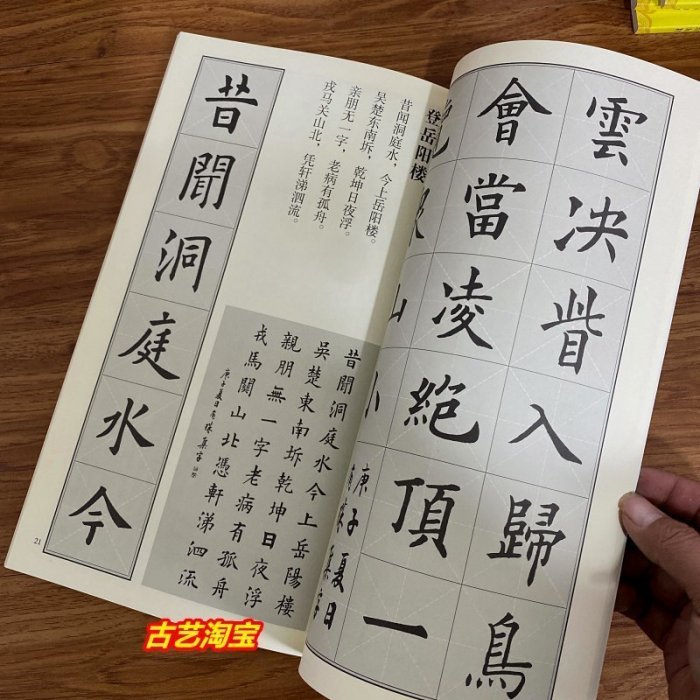 雲决眥入歸鳥
會當凌絶頂一
山
庚子夏日
登岳阳楼
昔闻洞庭水,今上岳阳楼。
吴楚东南坼,乾坤日夜浮。
亲朋无一字,老病有孤舟。
戎马关山北,凭轩涕泗流。
昔聞洞庭水今上岳陽樓
吳楚東南坼乾坤日夜浮
親朋無一字老病有孤舟
戎馬關山北憑軒涕泗流
昔聞洞庭水今
21
古艺淘宝